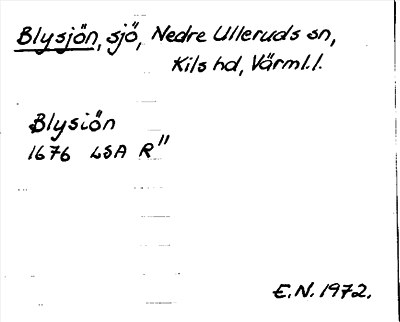 Blysjön, sjö, Nedre Ulleruds sn,
Kils hd, Värml.l.
Blysiön
1676 LSA R"
E.N. 1972.